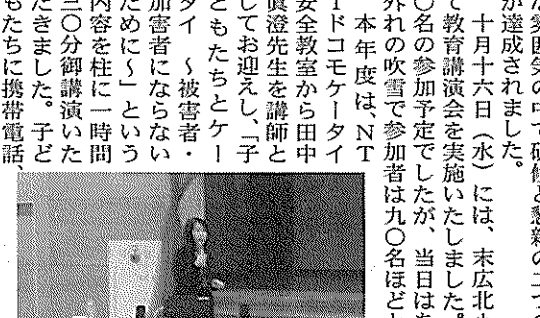 た雰囲気の中で研修と懇親の二つの
が達成されました。
十月十六日（水）には、末広北小
て教育講演会を実施いたしました。
〇名の参加予定でしたが、当日は
外れの吹雪で参加者は九〇名ほどと
本年度は、NT
Tドコモケータイ
安全教室から田中
眞澄先生を講師と
してお迎えし、「子
どもたちとケー
タイ　～被害者・
加害者にならない
ために～」という
内容を柱に一時間
三〇分御講演いた
だきました。子ど
もたちに携帯電話、